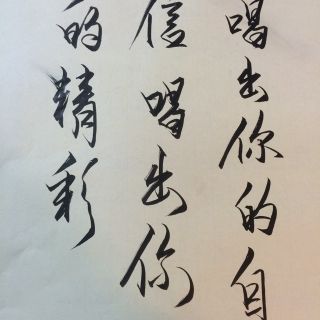 喝出你的自
信喝出你
的精彩